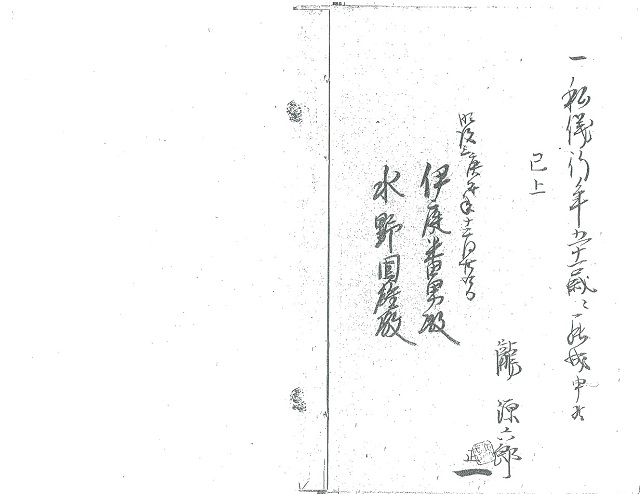 一私儀行年五十二歳ニ罷成申候
已上
明治三庚午年十二月
瀧源六郎
伊庭番男殿
水野国蔵殿